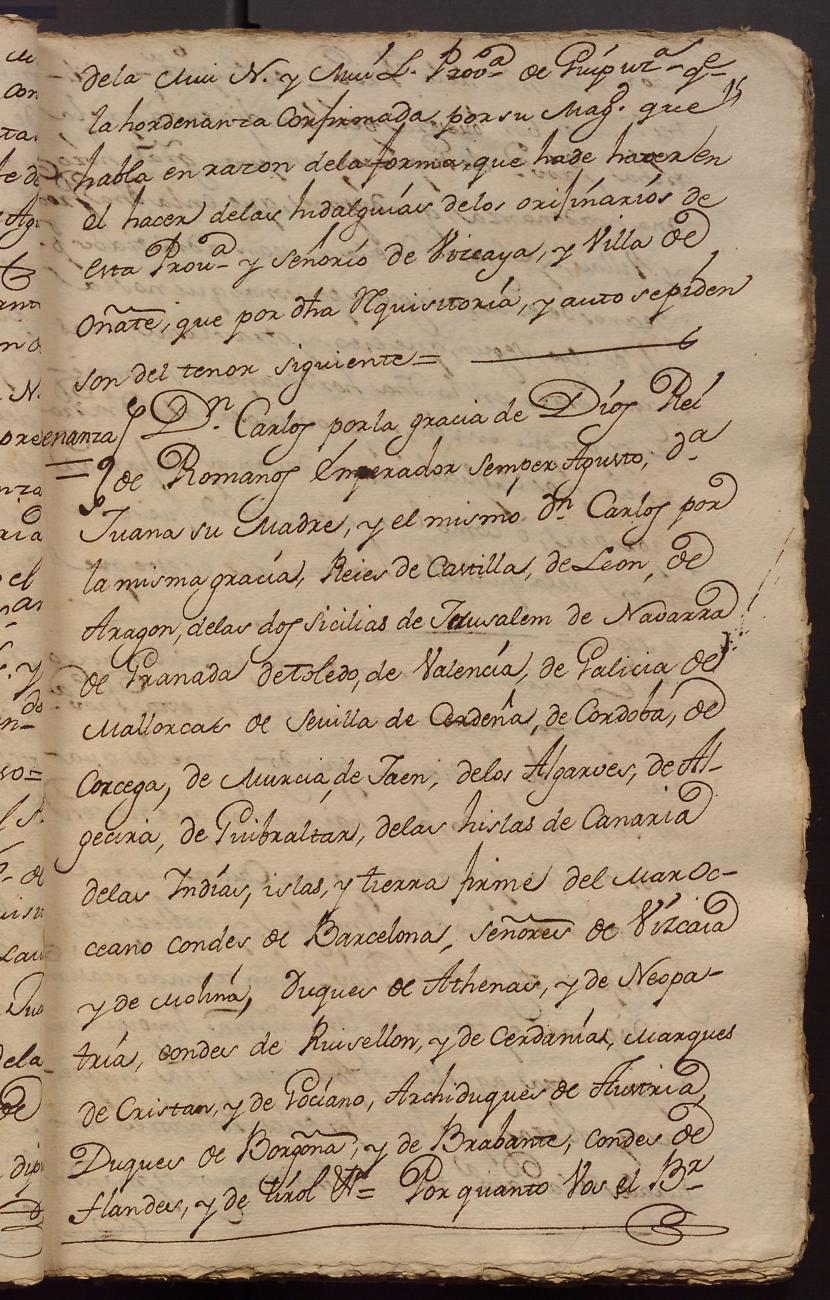 dela Mui N. y Mui L. Prov.ª de Guipuz.ª q.e
15
la hordenanza Confirmada, por su Mag.d que
habla en razon dela forma, que hade hazer en
el hacer delas hidalguias delos orijinarios de
esta Prov.ª y señorio de Vizcaya, y Villa de
Oñate, que por dha Requisitoria, y auto se piden
son del tenor siguiente=
enanza D.n Carlos por la gracia de Dios Rei
de Romanos Emperador semper Agusto, d.ª
Juana su Madre, y el mismo d.n Carlos por
la misma gracia, Reies de Castilla, de Leon, de
Aragon, delas dos Sicilias de Jerusalem de Navarra
de Granada de toledo, de Valencia, de Galicia de
Mallorcas de Sevilla de Cerdeña, de Cordoba, de
Corcega, de Murcia, de Jaen, delos Algarves, de Al-
gecira, de Guibraltar, delas hislas de Canaria
delas Indias, islas, y tierra firme del Mar Oc-
ceano condes de Barcelona, señores de Vizcaia
y de Molina, Duques de Athenas, y de Neopa-
tria, condes de Ruisellon, y de Cerdania, Marques
de Cristan, y de Gociano, Archiduques de Austria,
Duques de Borgoña, y de Brabante, condes de
flandes, y de tirol &.ª= Por quanto Vos el B.r